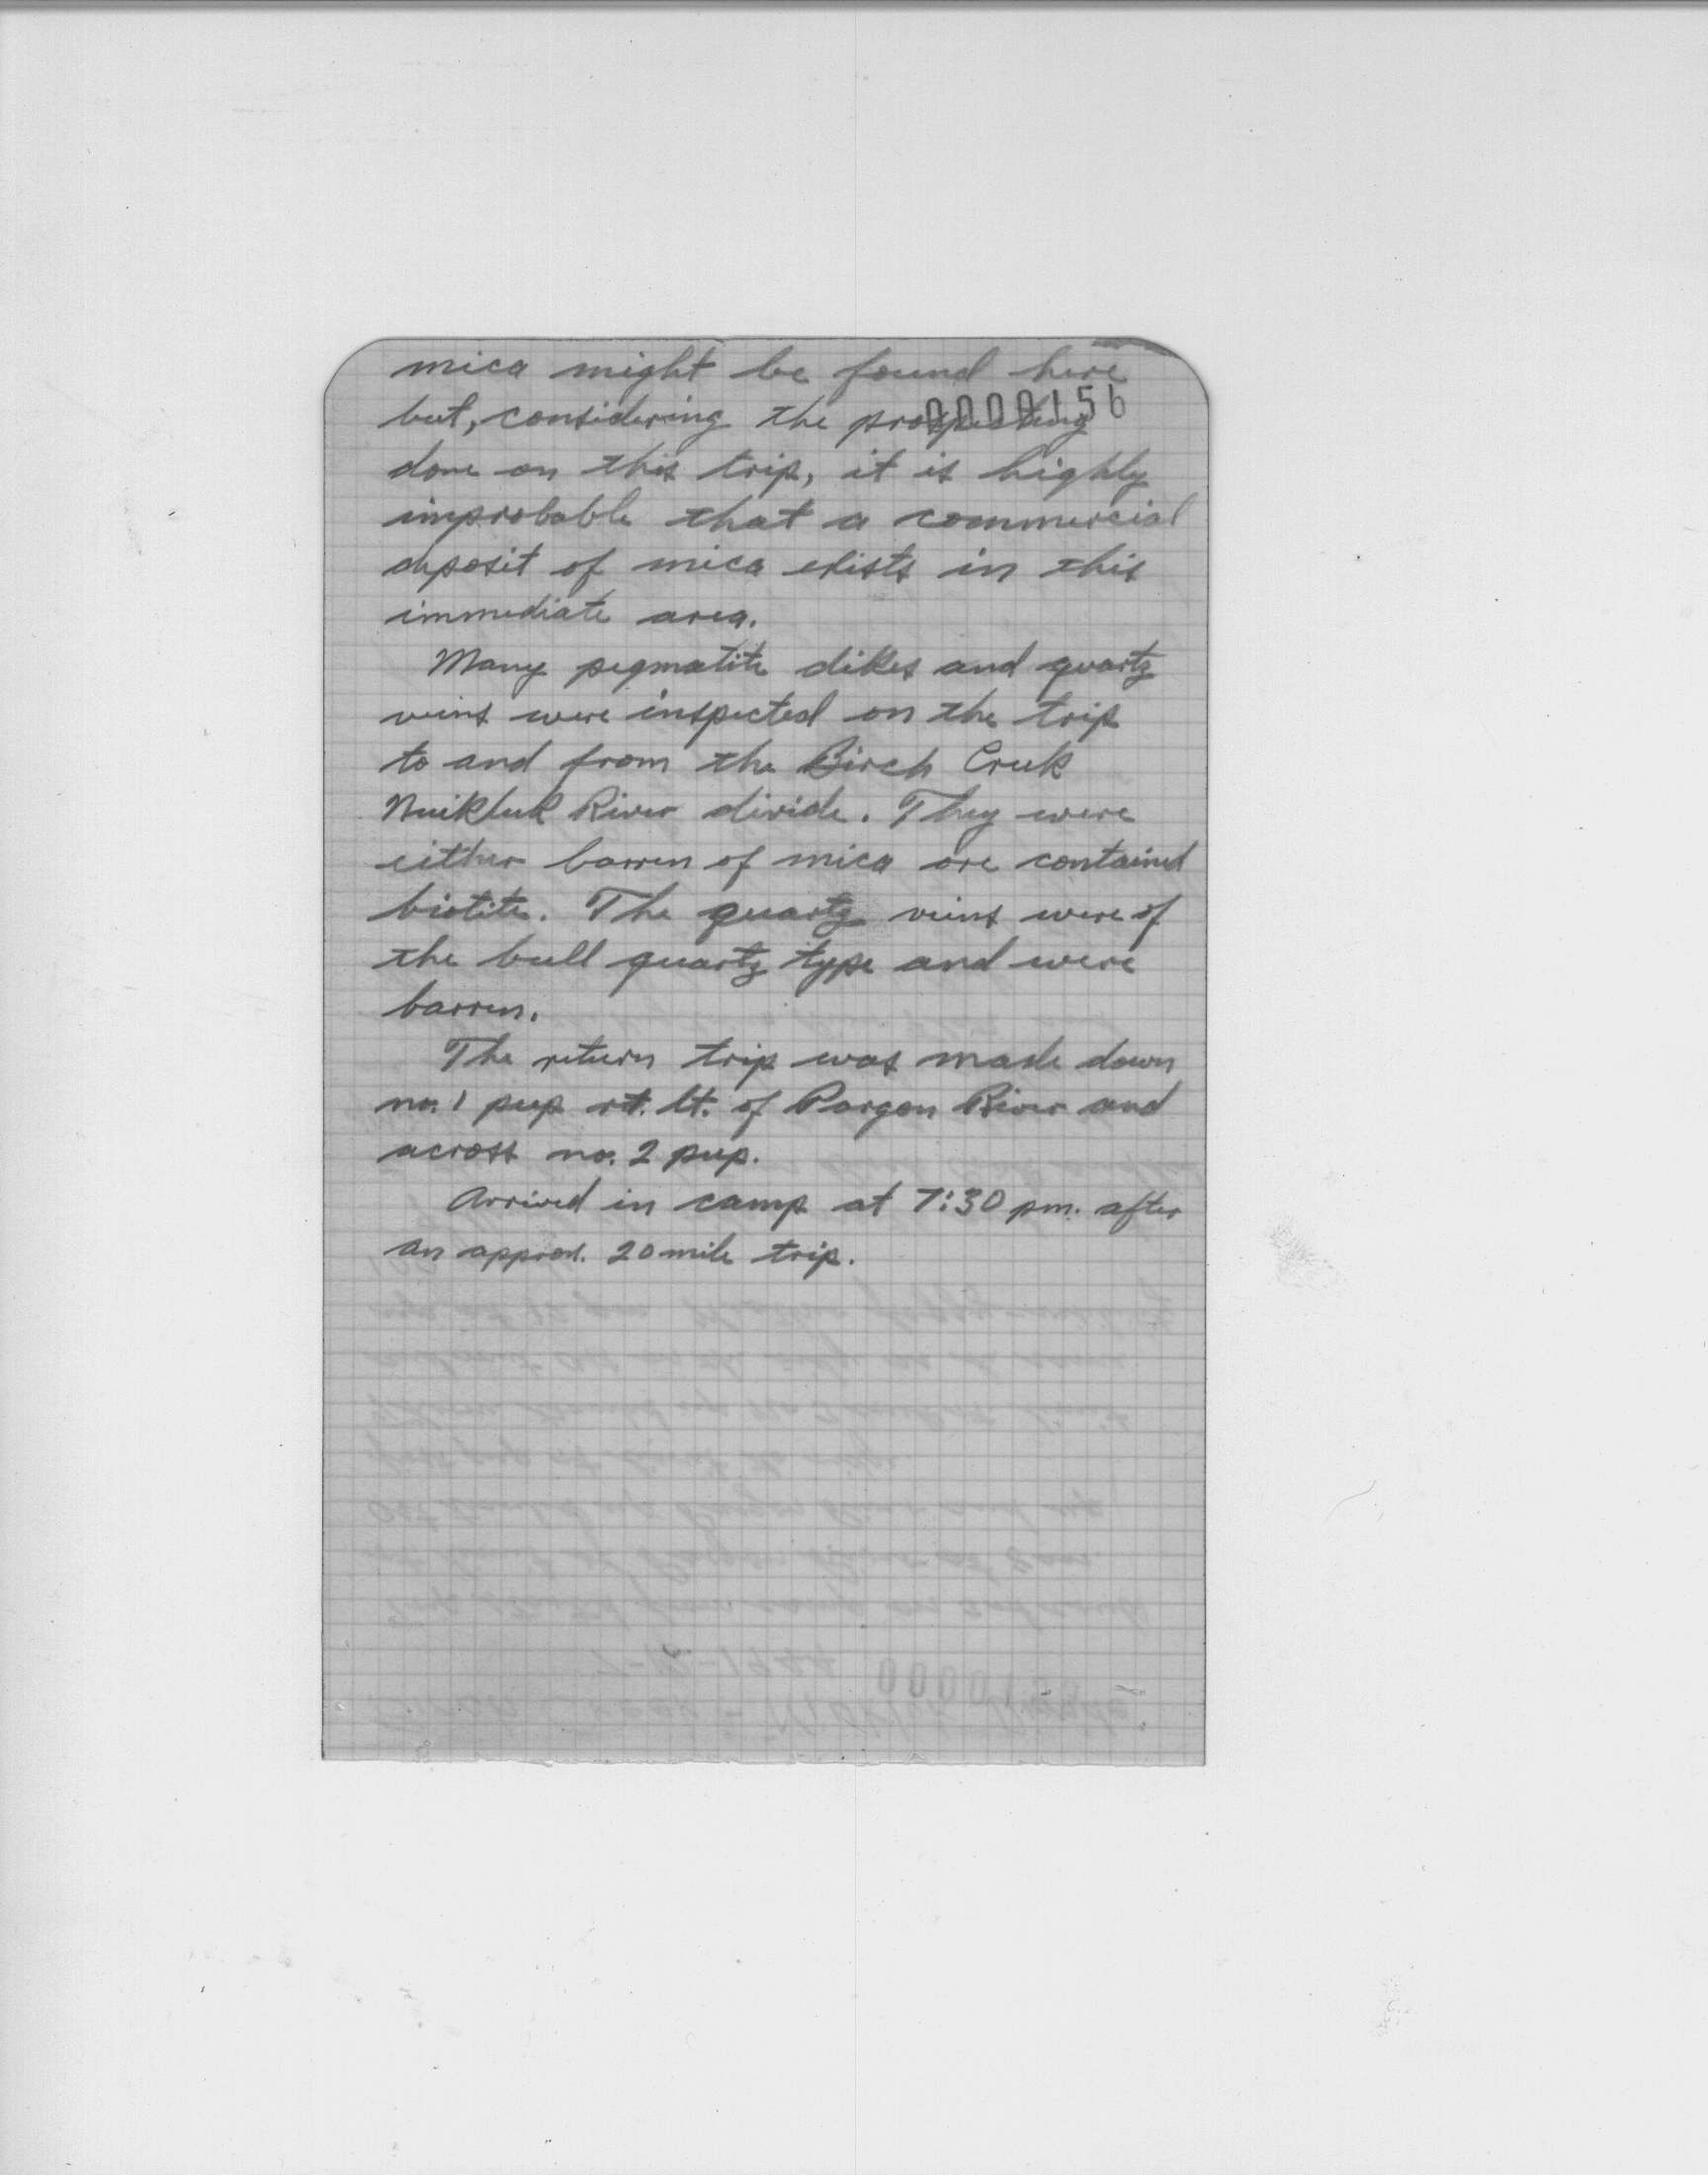 mica might be found here
0000156
but, considering the prospecting
done on this trip, it is highly
improbable that a commercial
deposit of mica exists in this
immediate area.
Many pegmatite dikes and quartz
veins were inspected on the trip
to and from the Birch Creek
Niukluk River divide. They were
either barren of mica ore contained
biotite. The quartz veins were of
the bull quartz type and were
barren.
The return trip was made down
no. 1 pup rt. lt. of Pargon River and
across no. 2 pup.
Arrived in camp at 7:30 pm. after
an approx. 20 mile trip.